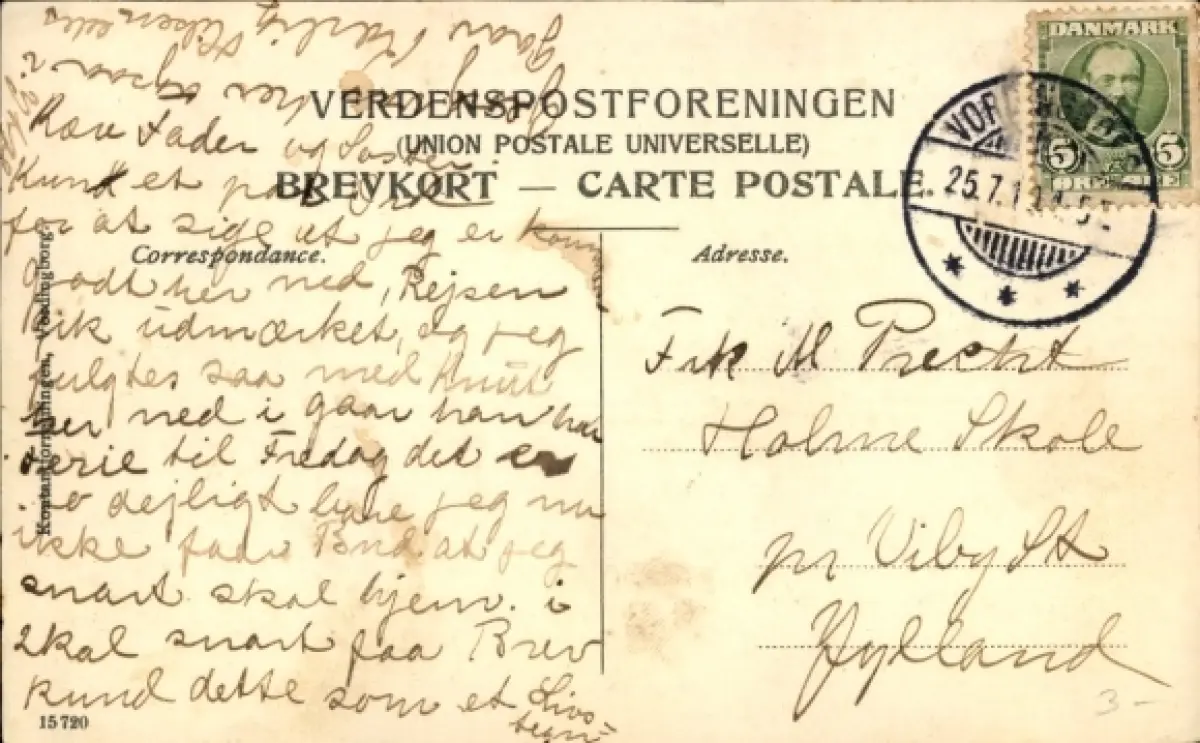 VERDENSPOSTFORENINGEN
(UNION POSTALE UNIVERSELLE)
BREVKORT — CARTE POSTALE.
Correspondance.
Adresse.
DANMARK
5 5
ØRE
25.7.1
Kære Fader og Søster
Kund et par Ord
for at sige at jeg er kommen
Godt her ned, Rejsen
gik udmærket, og jeg
fulgtes saa med Knut
her ned i gaar han har
Ferie til Fredag det er
saa dejligt bare jeg nu
ikke faar Bud at jeg
snart skal hjem. i
skal snart faa Brev
kund dette som et Livs-
tegn
Frk M Precht
Holme Skole
pr Viby St
Jylland
15720
3-